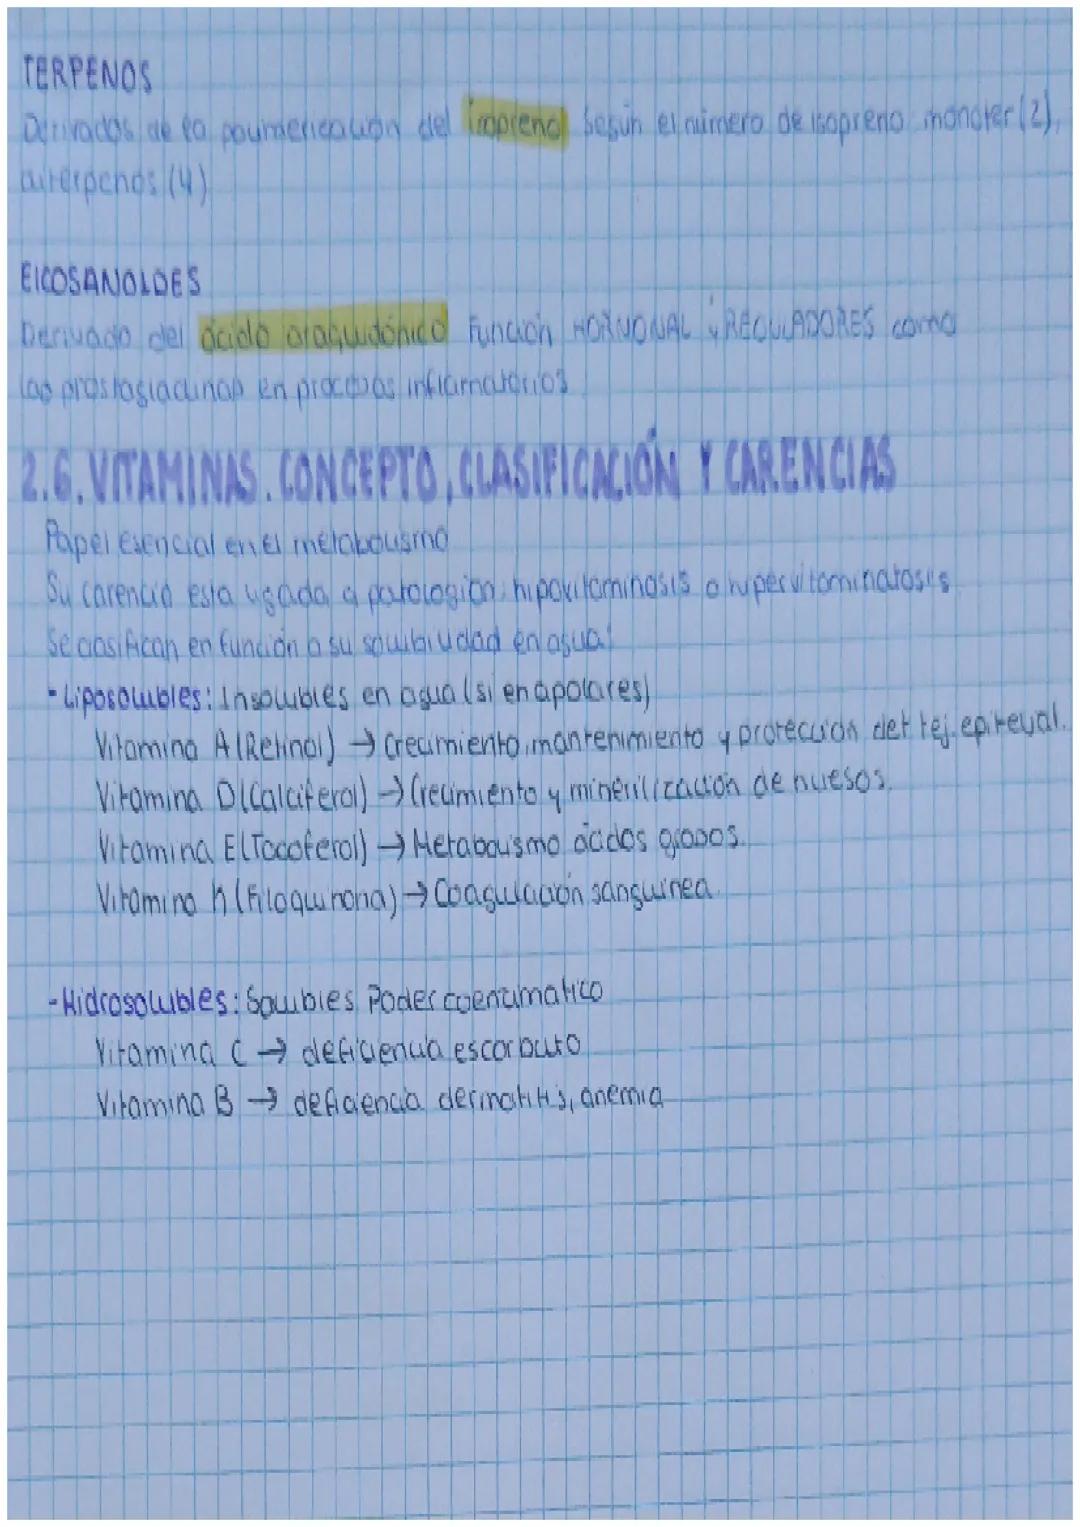 TERPENOS
Derivados de la polimerización del isopreno Según el número de isopreno: monoter(2),
diterpenos (4)
EICOSANOIDES
Derivado del ácido araquidónico Función HORMONAL y REGULADORES como
las prostagladinas en procesos inflamatorios
2.6. VITAMINAS. CONCEPTO, CLASIFICACIÓN Y CARENCIAS
Papel esencial en el metabolismo
Su carencia esta ligada a patologias: hipovitaminosis o hipervitaminatosis
Se clasifican en función a su solubilidad en agua:
- Liposolubles: Insolubles en agua (si en apolares)
Vitamina A (Retinol) → Crecimiento, mantenimiento y protección del tej. epitelial.
Vitamina D (Calciferol) → Crecimiento y minerilización de huesos.
Vitamina E (Tocoferol) → Metabolismo ácidos grasos.
Vitamina K (Filoquinona) → Coagulación sanguínea.
- Hidrosolubles: Solubles. Poder coenzimatico
Vitamina C → deficiencia escorbuto
Vitamina B → deficiencia dermatitis, anemia